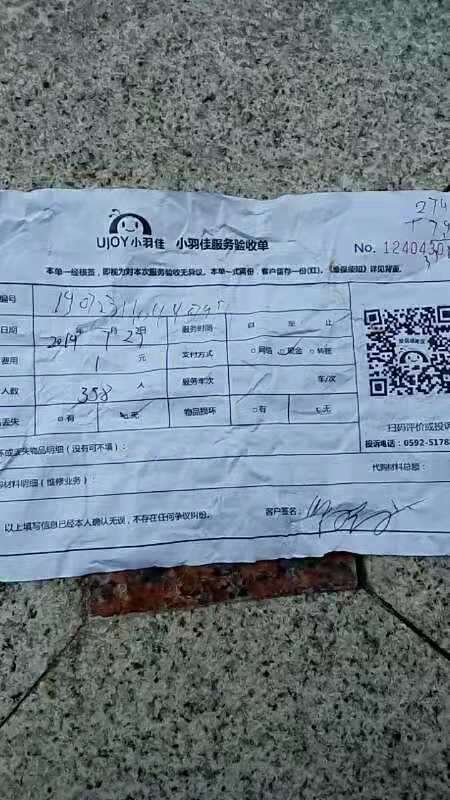 274
UJOY小羽佳 小羽佳服务验收单
No. 1240430
本单一经核签，即视为对本次服务验收无异议。本单一式两份，客户留存一份(红)。《维保须知》详见背面。
编号
日期 2019 年 7 月 29 日 服务时间 自 至 止
费用 1 元 支付方式 网络 现金 转账
人数 358 人 服务车次 车/次
丢失 有 无 物品损坏 有 无
扫码评价或投诉
投诉电话：0592-5178
坏或丢失物品明细（没有可不填）：
代购材料总额：
材料明细（维修业务）
以上填写信息已经本人确认无误，不存在任何争议纠纷。 客户签名：